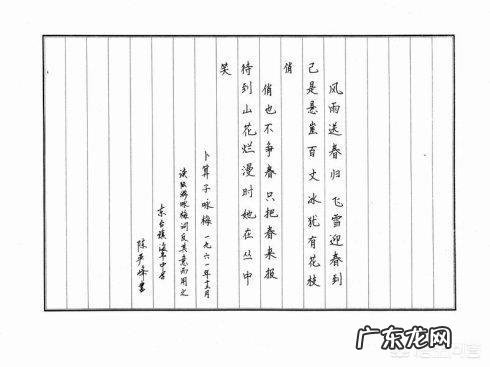 风雨送春归飞雪迎春到
己是悬崖百丈冰犹有花枝
俏
俏也不争春只把春来报
待到山花烂漫时她在丛中
笑
卜算子咏梅一九六一年十二月
读陆游咏梅词反其意而用之
东台镇海丰中学
陈
广东龙网